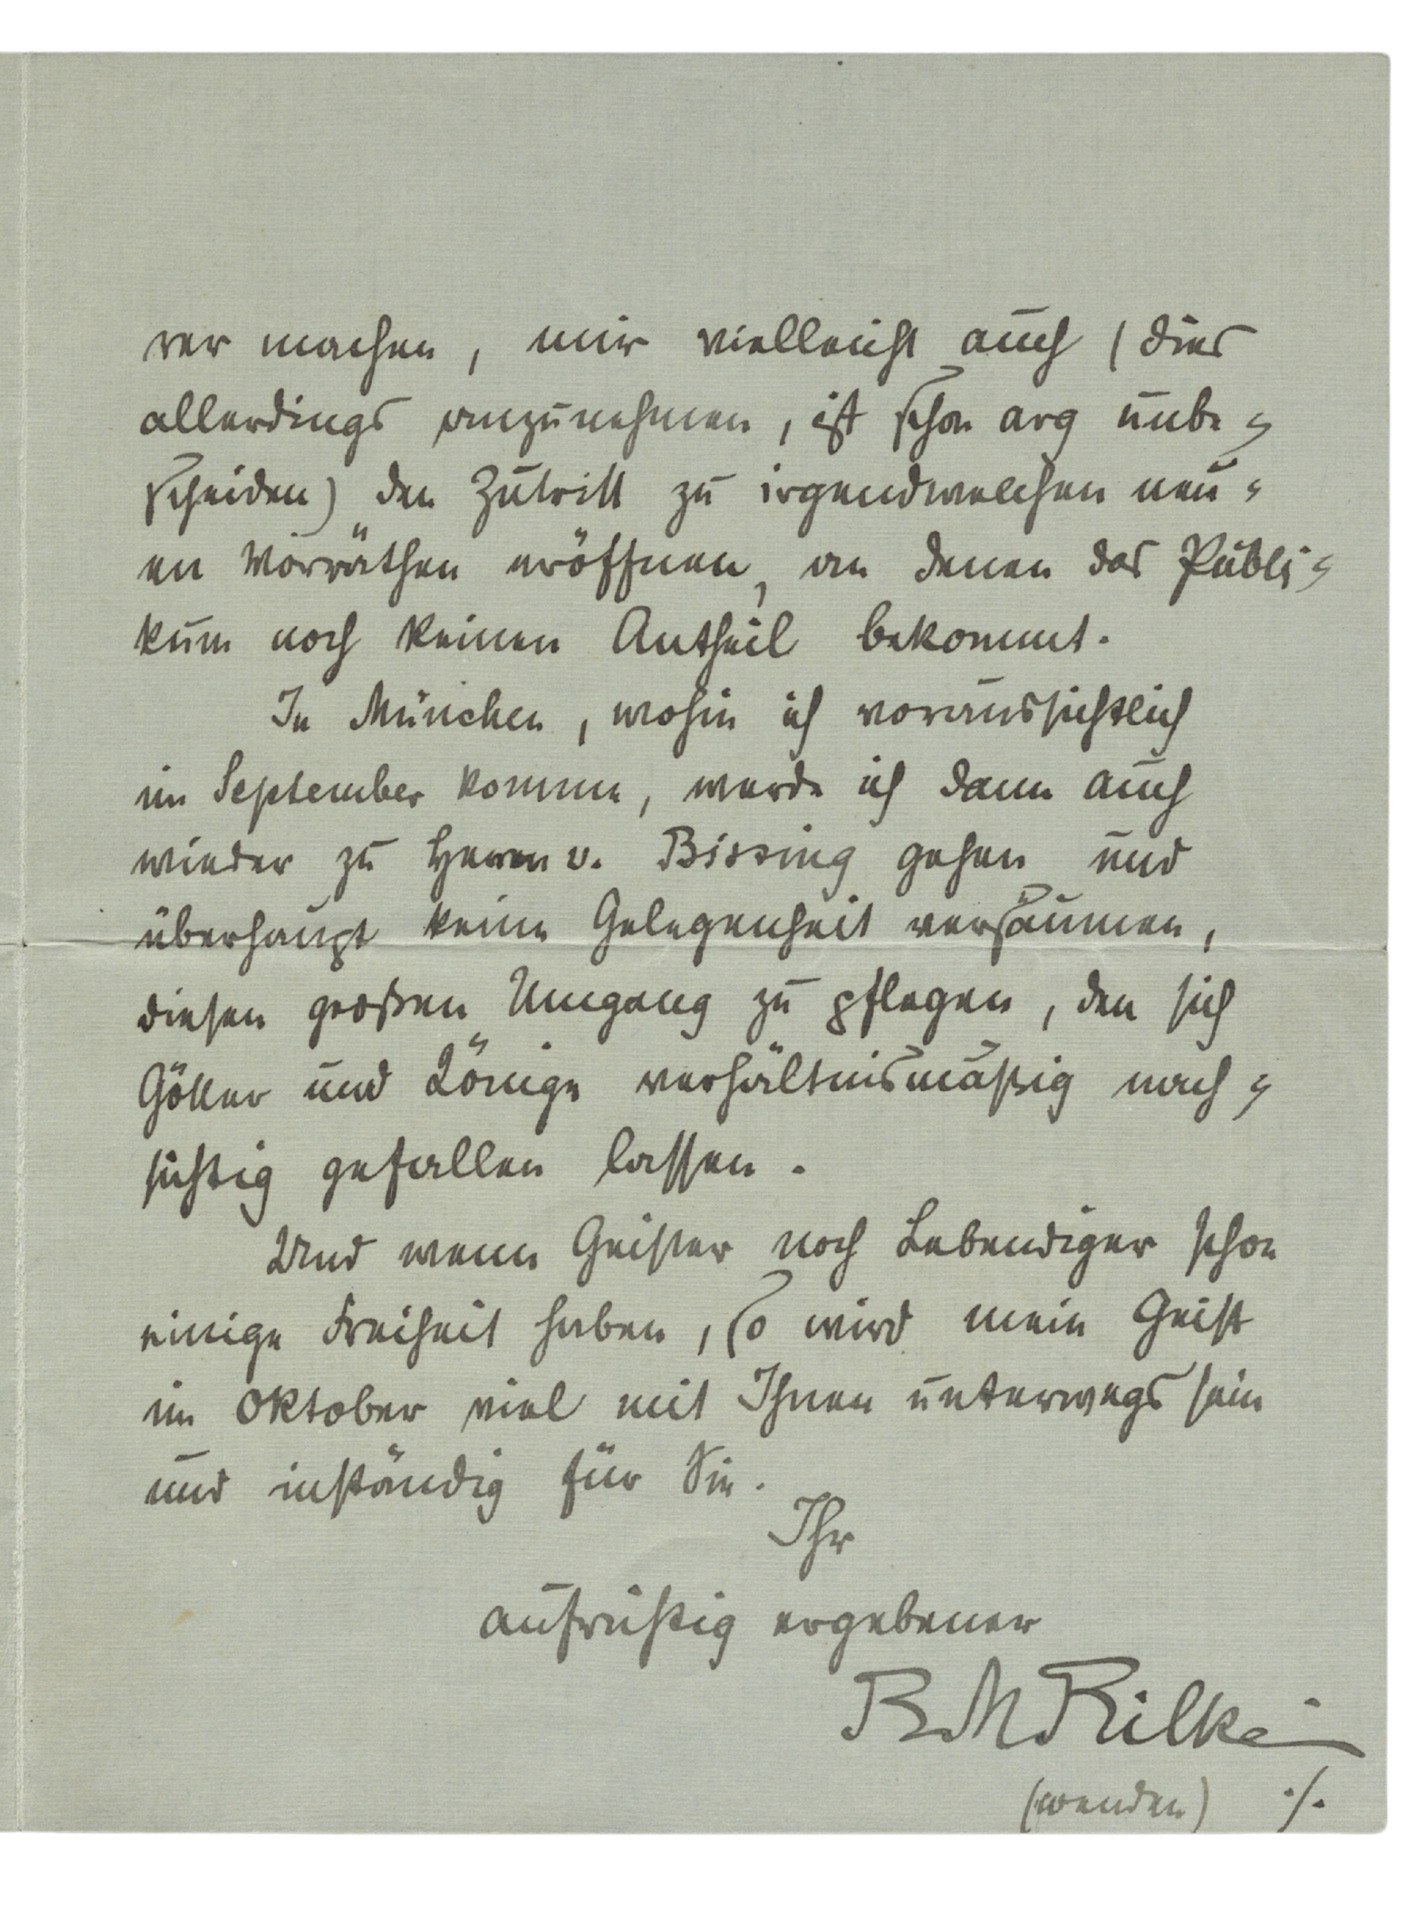 rer machen, mir vielleicht auch (dies
allerdings anzunehmen, ist schon arg unbe-
scheiden) den Zutritt zu irgendwelchen neu-
en Vorräthen eröffnen, an denen das Publi-
kum noch keinen Antheil bekommt.
In München, wohin ich voraussichtlich
im September komme, werde ich dann auch
wieder zu Herrn v. Bissing gehen und
überhaupt keine Gelegenheit versäumen,
diesen großen Umgang zu pflegen, den sich
Götter und Könige verhältnismäßig nach-
sichtig gefallen lassen.
Und wenn Geister noch Lebendiger schon
einige Freiheit haben, so wird mein Geist
im Oktober viel mit Ihnen unterwegs sein
und inständig für Sie.
Ihr
aufrichtig ergebener
RMRilke
(wenden) ./.